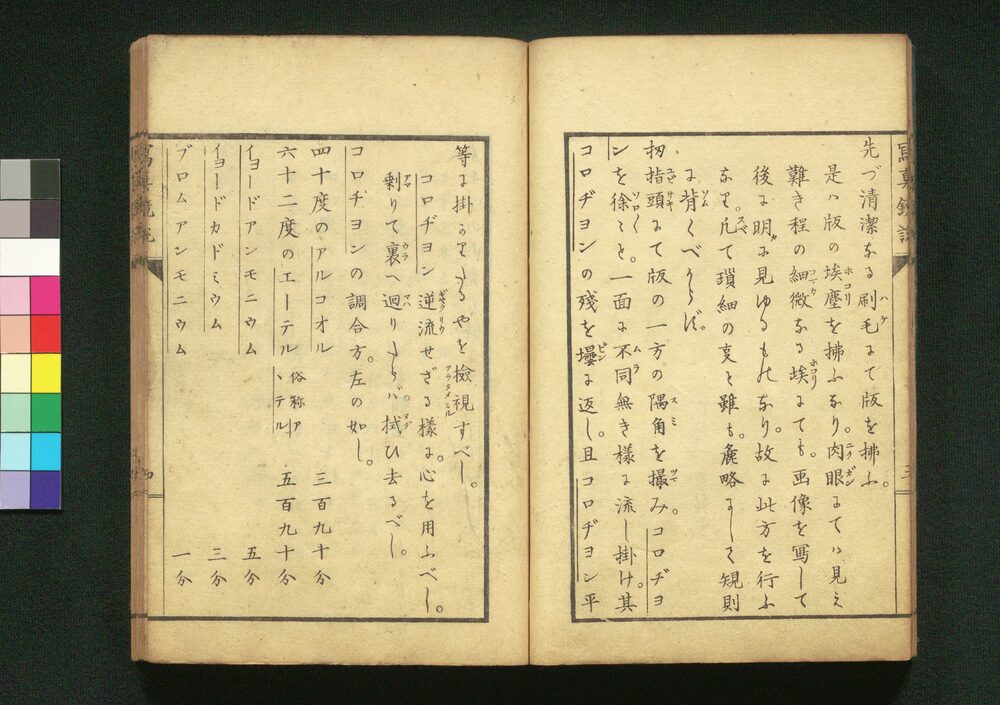 先づ清潔なる刷毛にて版を拂ふ。
是ハ版の埃塵を拂ふなり。肉眼にてハ見え
難き程の細微なる埃にても。画像を写して
後に明かに見ゆるものなり。故に此方を行ふ
なり。凡て瑣細の叓と雖も。麁略にして規則
に背くべからず。
扨指頭にて版の一方の隅角を撮み。コロヂヨ
ンを徐々と。一面に不同無き様に流し掛け。其
コロヂヨンの殘を壜に返し。且コロヂヨン平
等に掛かりたるやを撿視すべし。
コロヂヨン逆流せざる様に心を用ふべし。
剰りて裏へ廻りたらバ拭ひ去るべし。
コロヂヨンの調合方。左の如し。
四十度のアルコオル 三百九十分
六十二度のエーテル 俗称アヽテル 五百九十分
イヨードアンモニウム 五分
イヨードカドミウム 三分
ブロムアンモニウム 一分